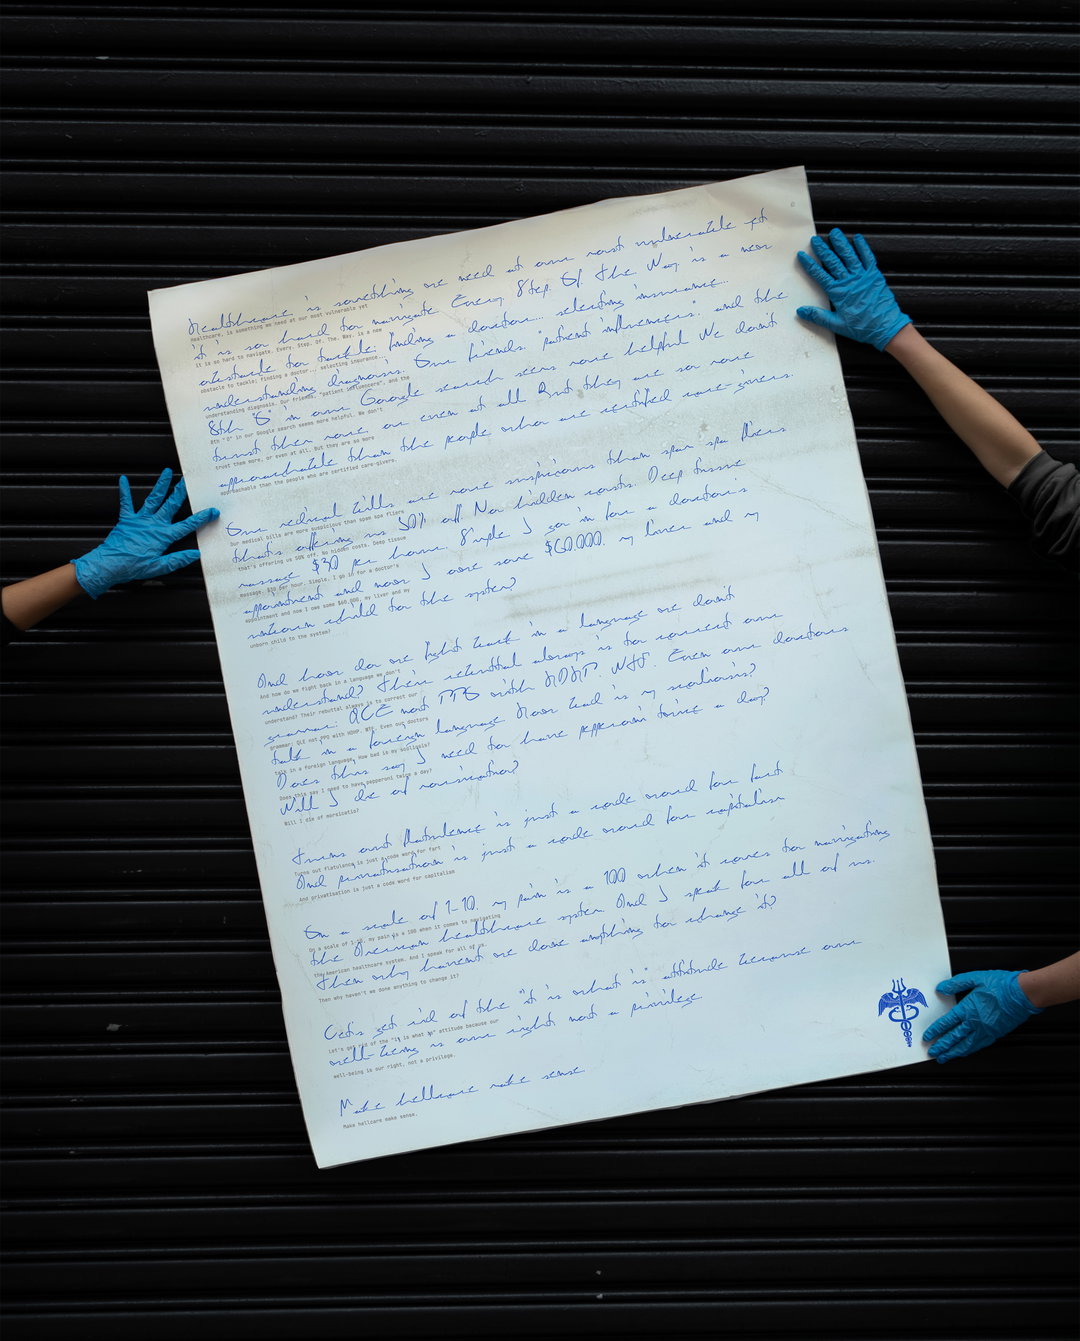 Healthcare is something we need at our most vulnerable yet
Healthcare, is something we need at our most vulnerable yet
it is so hard to navigate Every Step. Of. The Way is a new
it is so hard to navigate. Every. Step. Of. The. Way. is a new
obstacle to tackle: finding a doctor... selecting insurance...
obstacle to tackle; finding a doctor.., selecting insurance...
understanding diagnosis. Our friends. "patient influencers." and the
understanding diagnosis. Our friends. "patient influencers", and the
8th "O" in our Google search seem more helpful We don't
8th "O" in our Google search seems more helpful. We don't
trust them more, or even at all But they are so more
trust them more, or even at all. But they are so more
approachable than the people who are certified care-givers.
approachable than the people who are certified care-givers.
Our medical bills are more suspicious than spam spa fliers
Our medical bills are more suspicious than spam spa fliers
that's offering us 50% off No hidden costs. Deep tissue
that's offering us 50% off. No hidden costs. Deep tissue
massage $30 per hour. Simple I go in for a doctor's
massage. $30 per hour. Simple. I go in for a doctor's
appointment and now I owe some $60,000. my liver and my
appointment and now I owe some $60,000, my liver and my
unborn child to the system?
unborn child to the system?
And how do we fight back in a language we don't
And how do we fight back in a language we don't
understand? Their rebuttal always is to correct our
understand? Their rebuttal always is to correct our
grammar: QLE not PPO with HDHP. Wtf. Even our doctors
grammar: QLE not PPO with HDHP. Wtf. Even our doctors
talk in a foreign language How bad is my scoliosis?
talk in a foreign language, How bad is my scoliosis?
Does this say I need to have pepperoni twice a day?
Does this say I need to have pepperoni twice a day?
Will I die of narcissism?
Turns out flatulence is just a code word for fart
Turns out flatulence is just a code word for fart
And privatisation is just a code word for capitalism
And privatisation is just a code word for capitalism
On a scale of 1-10, my pain is a 100 when it comes to navigating
On a scale of 1-10, my pain is a 100 when it comes to navigating
the American healthcare system And I speak for all of us.
the American healthcare system. And I speak for all of us.
Then why haven't we done anything to change it?
Then why haven't we done anything to change it?
Let's get rid of the "it is what is" attitude because our
Let's get rid of the "it is what is" attitude because our
well-being is our right not a privilege
well-being is our right, not a privilege.
Make hellcare make sense
Make hellcare make sense.